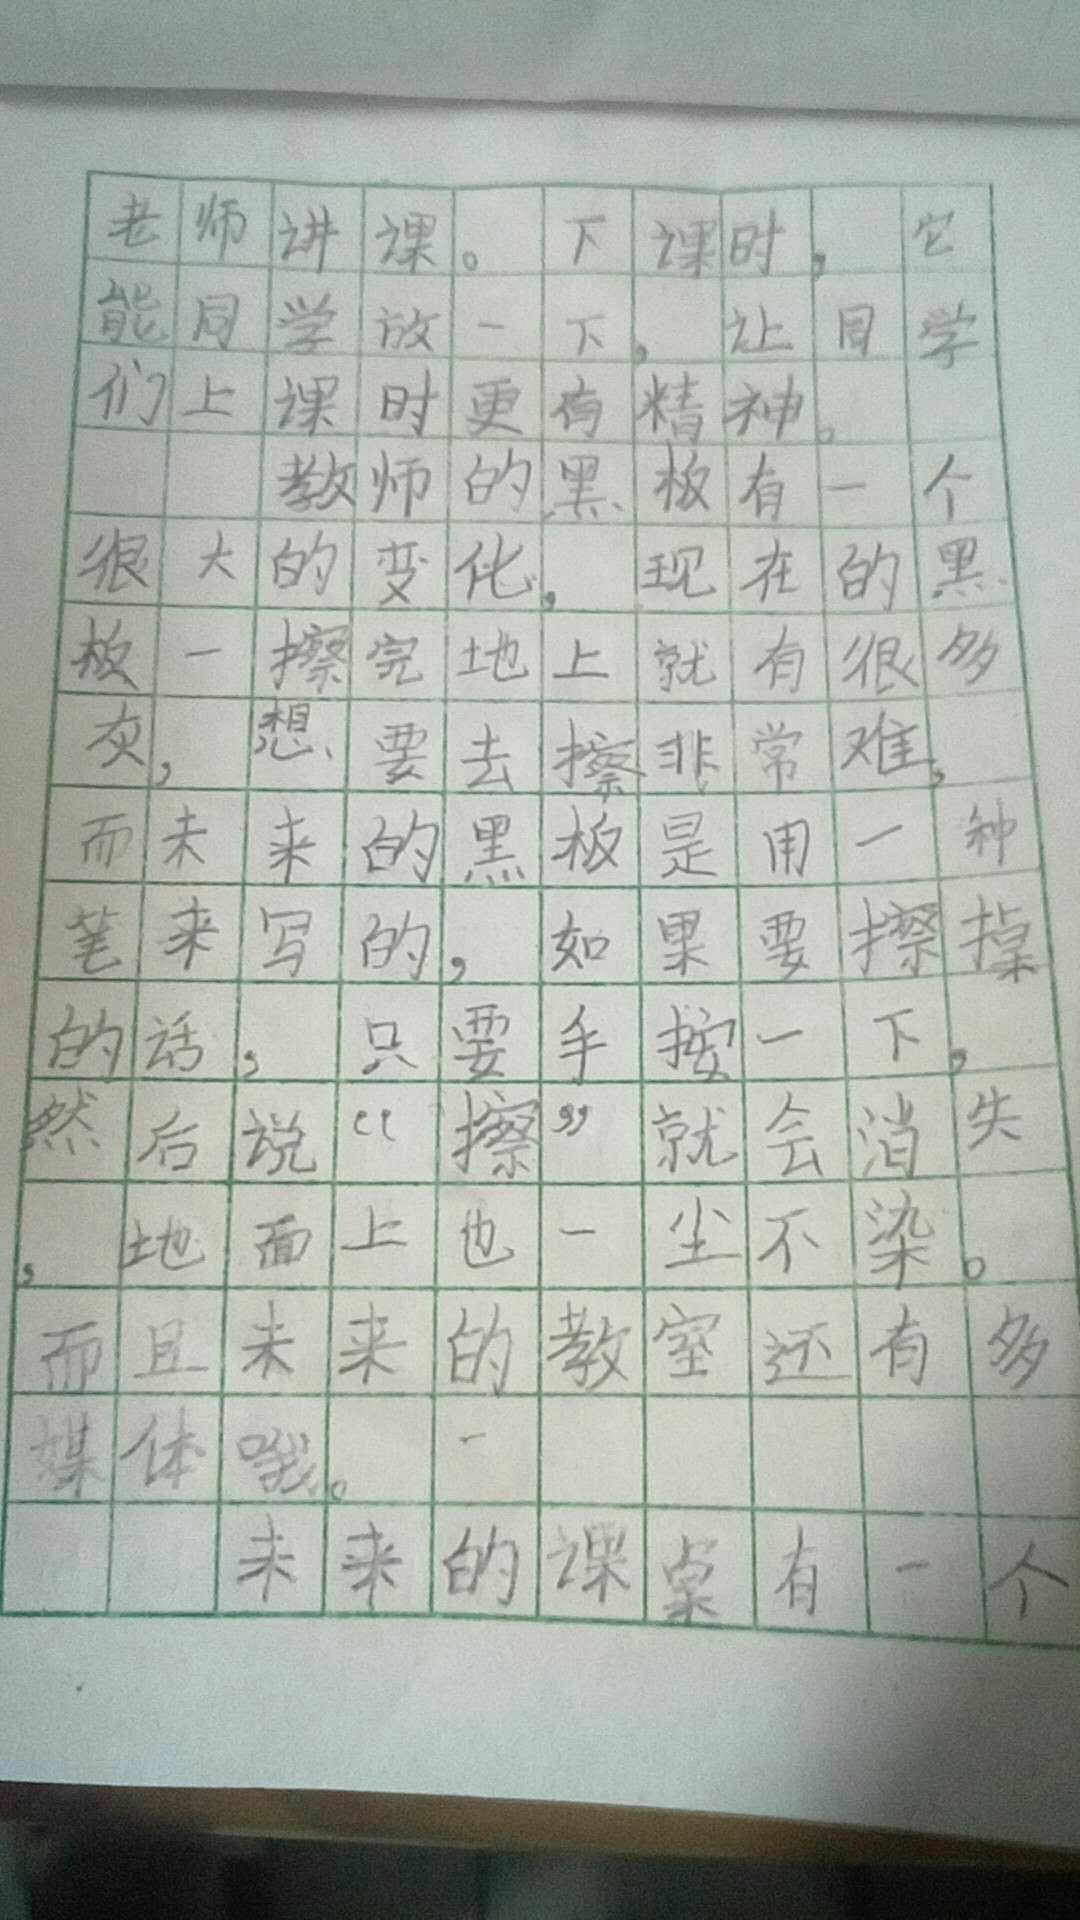 老师讲课。下课时,它
能同学放一下,让同学
们上课时更有精神。
教师的黑板有一个
很大的变化,现在的黑
板一擦完地上就有很多
灰,想要去擦非常难,
而未来的黑板是用一种
笔来写的,如果要擦掉
的话,只要手按一下,
然后说“擦”就会消失
,地面上也一尘不染。
而且未来的教室还有多
媒体哦。一
未来的课桌有一个